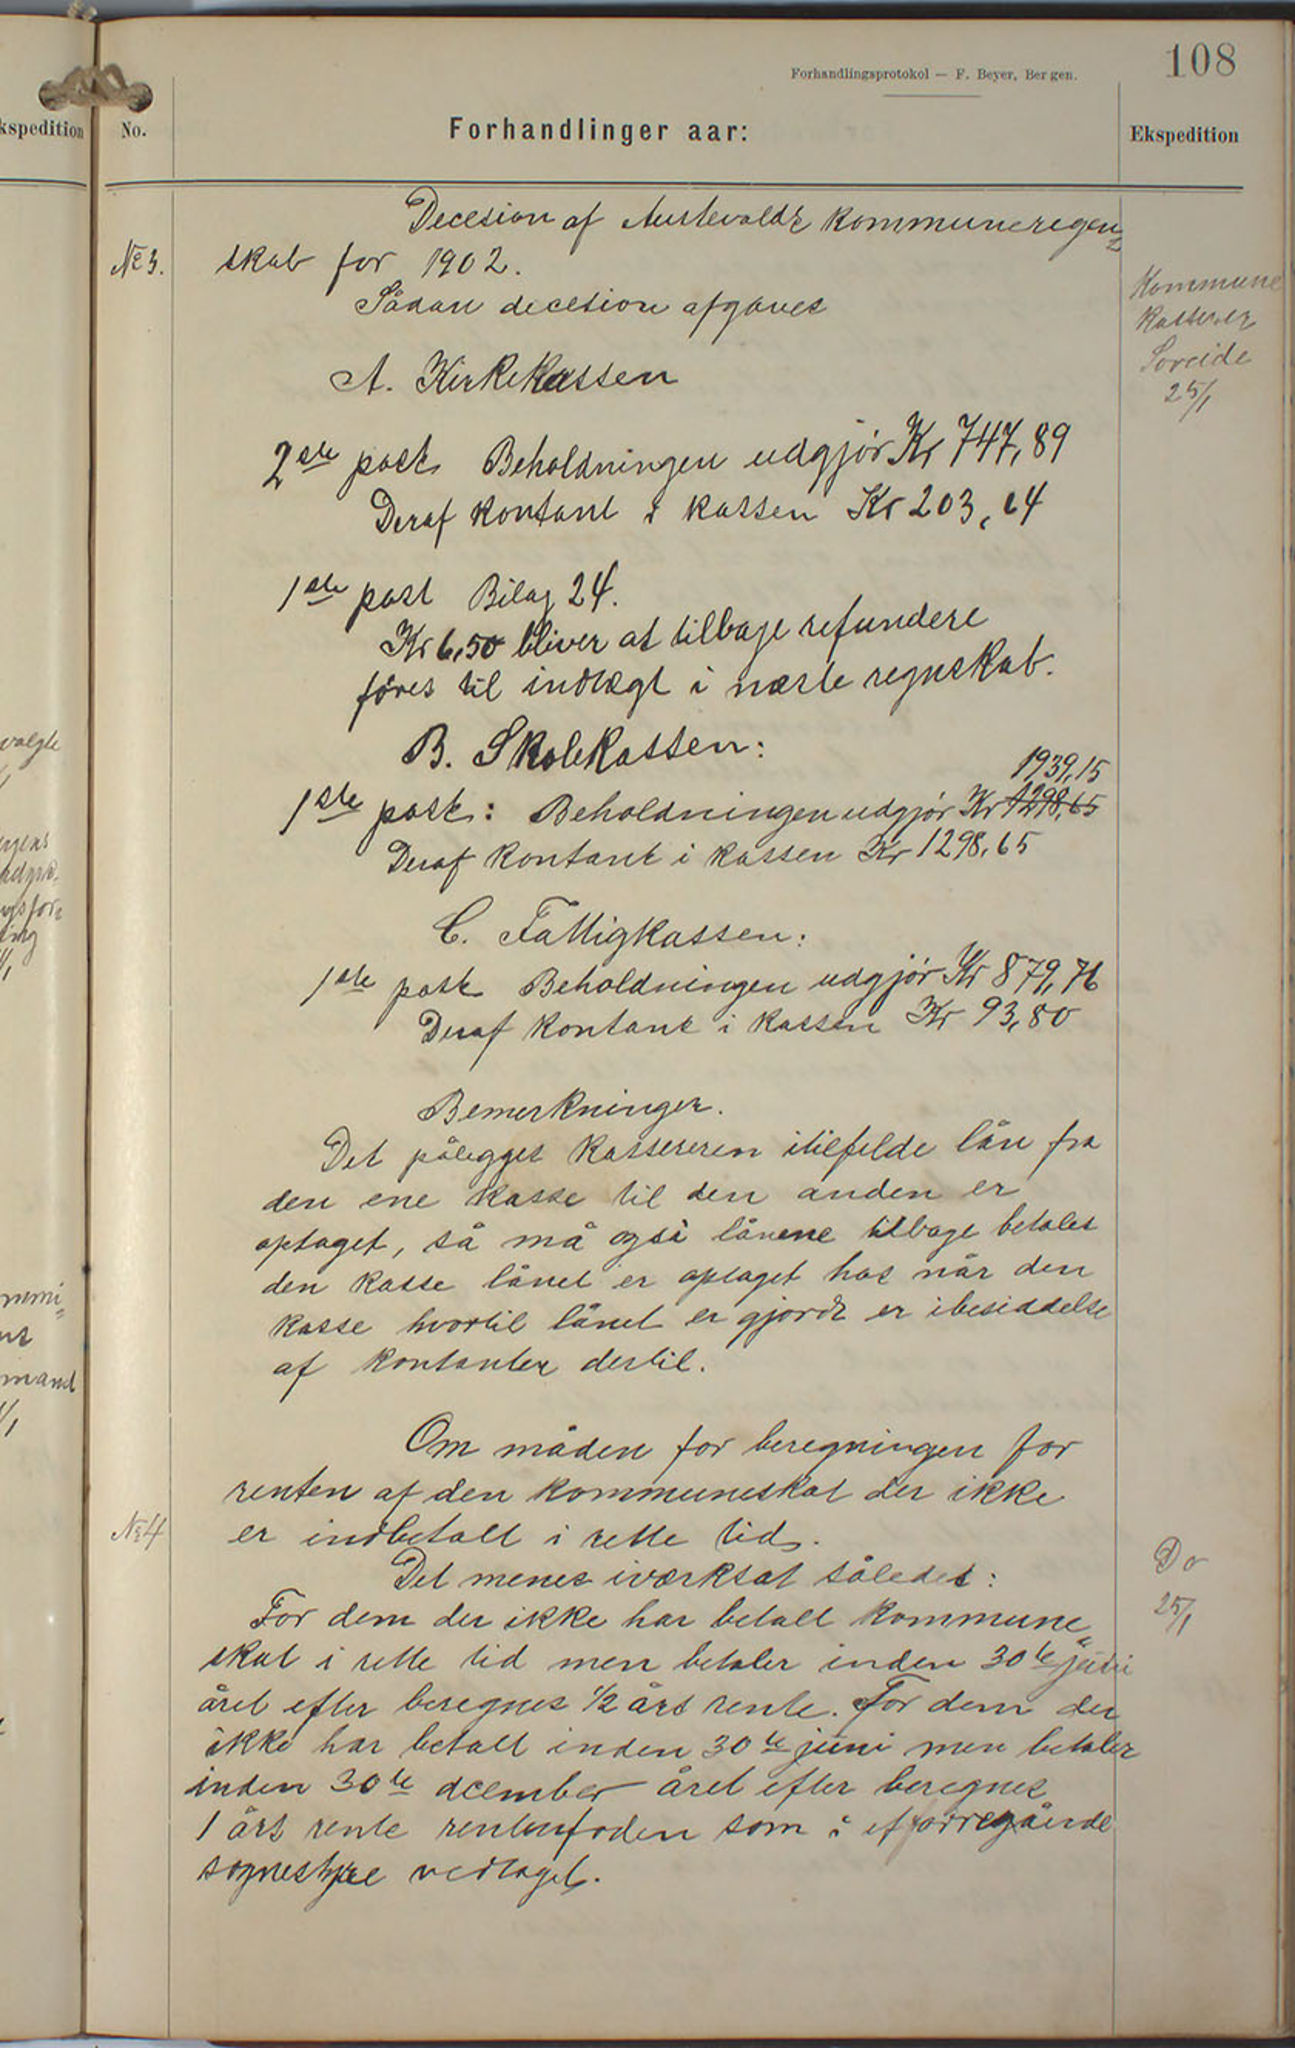 108
Forhandlingsprotokol — F. Beyer, Bergen.
kspedition
No.
Forhandlinger aar:
Ekspedition
Decesion af Austevolds kommuneregn„
No 3.
skab for 1902.
Sådan decesion afgaves
Kommune
kasserer
Soreide
25/1
A. Kirkekassen
2den post Beholdningen udgjør Kr 747,89
Deraf kontant i kassen Kr 203,64
1ste post Bilag 24.
Kr 6,50 bliver at tilbage refundere
føres til indtægt i næste regnskab.
B. Skolekassen:
1939,15
1ste post: Beholdningen udgjør Kr 1298,65
Deraf kontant i kassen Kr 1298,65
C. Fattigkassen:
1ste post Beholdningen udgjør Kr 879,76
Deraf kontant i kassen Kr 93,80
Bemerkninger.
Det pålegges kassereren itilfelde lån fra
den ene kasse til den anden er
optaget, så må også lånene tilbage betales
den kasse lånet er optaget hos når den
kasse hvortil lånet er gjordt er ibesiddelse
af kontanter dertil.
Om måden for beregningen for
renten af den kommuneskat der ikke
No 4
er indbetalt i rette tid.
Det menes iværksat således:
Do
25/1
For dem der ikke har betalt kommune„
skat i rette tid men betaler inden 30te juni
året efter beregnes 1/2 års rente. For dem der
ikke har betalt inden 30te juni men betaler
inden 30te dcember året efter beregnes
1 års rente rentenfoden som i et forregående
sognestyre vedtaget.
valgte
mand